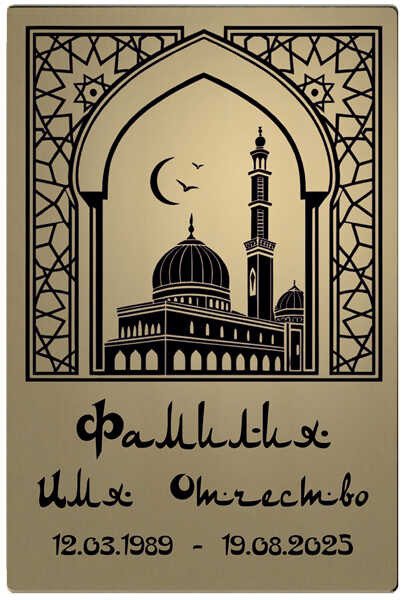 Фамилия
Имя Отчество
12.03.1989 - 19.08.2025